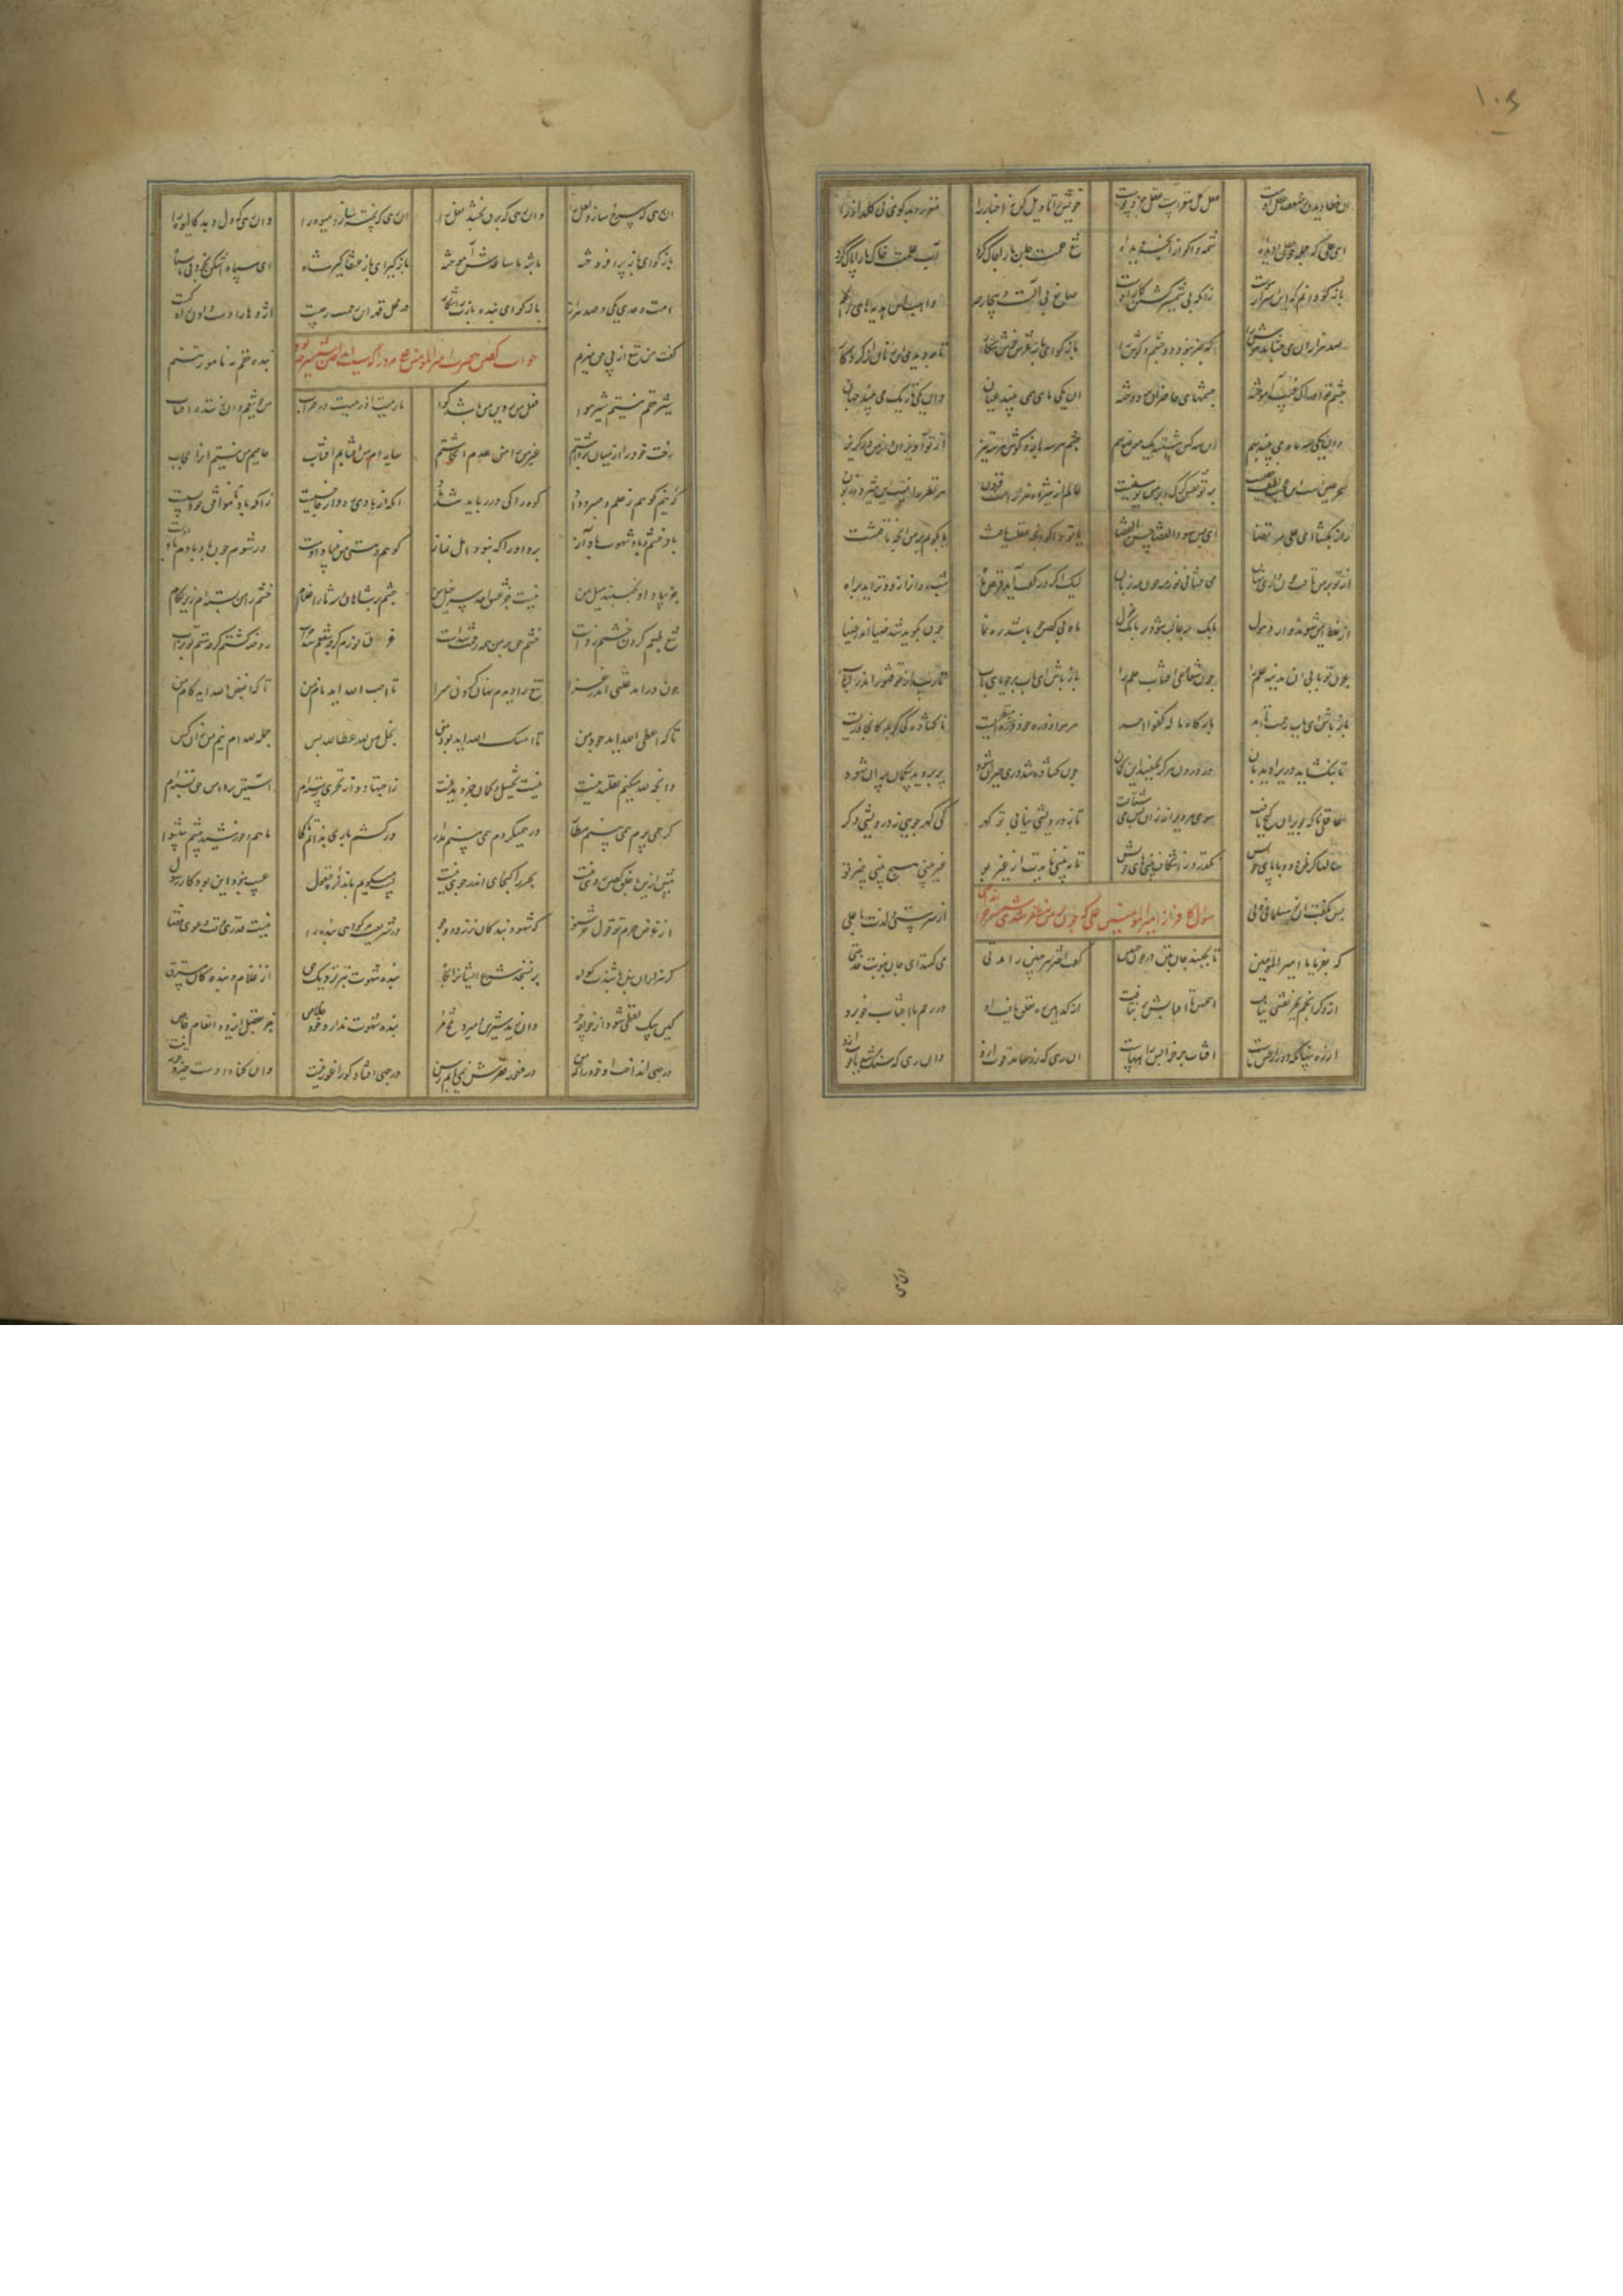 آن خطا دیدن ز ضعف عقل اوست عقل کل مغزست عقل جزو پوست خویش را تاویل کن نه اخبار را مغز را بد گوی نی گلزار را
ای علی که جمله عقل و دیده شمه واگو از آنچه دیده تیغ حلمت جان ما را چاک کرد آب علمت خاک ما را پاک کرد
بازگو دانم که این اسرار هوست زانکه بی شمشیر کشتن کار اوست صانع بی آلت و بی جارحه واهب این هدیهای
صد هزاران می چشاند هوش را که خبر نبود دو چشم و گوش را بازگو ای باز عرش خوش شکار تا چه دیدی این زمان از کردگار
چشم تو ادراک غیب آموخته چشمهای حاضران بر دوخته آن یکی ماهی همی بیند عیان وان یکی تاریک می بیند جهان
وان یکی سه ماه می بیند بهم این سه کس بنشسته یک موضع نعم چشم هر سه باز و گوش هر سه تیز از تو آویزان و از من در گریز
سحر عین است این عجب لطف خفیست بر تو نقش گرگ و بر من یوسفیست عالم ار هژده هزارست و فزون هر نظر را نیست این هژده زبون
راز بگشا ای علی مرتضا ای پس سوء القضا حسن القضا یا تو واگو آنچه عقلت یافتست یا بگویم آنچه بر من تافتست
از تو بر من تافت چون داری نهان می فشانی نور چون مه بی زبان لیک اگر در گفت آید قرص ماه شب روان را زودتر آید براه
از غلط ایمن شوند و از ذهول بانگ مه غالب شود بر بانگ غول ماه بی گفتن چو باشد رهنما چون بگوید شد ضیا اندر ضیا
چون تو بابی آن مدینه علم را چون شعاعی آفتاب حلم را باز باش ای باب بر جویای باب تا رسد از تو قشور اندر لباب
باز باش ای باب رحمت تا ابد بارگاه ما له کفوا احد هر هوا و ذره خود منظریست ناگشاده کی گوید کانجا دریست
تا بنگشاید دری را دیدبان در درون هرگز نجنبد این گمان چون گشاده شد دری حیران شود پر بروید بر گمان پران شود
غافلی ناگه بویران گنج یافت سوی هر ویران از آن پس می شتافت تا ز درویشی نیابی تو گهر کی گهر جویی ز درویشی دگر
سالها گر ظن دود با پای خویش نگذرد ز اشکاف بینیهای خویش تا به بینی نایدت از غیب بو غیر بینی هیچ بینی
سوال کافر از امیر المومنین علی که چون بر من مظفر شدی شمشیر
پس بگفت آن نو مسلمان ولی از سر مستی و لذت با علی
که بفرما یا امیر المومنین تا بجنبد جان بتن در چون جنین هفت اختر هر جنین را مدتی می کنند ای جان بنوبت خدمتی
از دگر انجم بجز نقشی نیافت این جنین تا آفتابش بر نتافت از کدامین ره تعلق یافت او در رحم با آفتاب خوب رو
از ره پنهان که دور از حس ماست آفتاب چرخ را بس راههاست آن رهی که زر بیابد قوت ازو وان رهی که سنگ شد یاقوت ازو
آن رهی که سرخ سازد لعل را وان رهی که برق بخشد نعل را آن رهی که پخته سازد میوه را وان رهی کو دل دهد کالیوه را
بازگو ای باز پر افروخته با شه با ساعدش آموخته بازگو ای باز عنقاگیر شاه ای سپاه اشکن بخود نی با سپاه
امت وحدی یکی و صد هزار بازگو ای بنده بازت را شکار در محل قهر این رحمت ز چیست اژدها را دست دادن راه کیست
جواب گفتن حضرت امیر المومنین
گفت من تیغ از پی حق میزنم بنده حقم نه مامور تنم
شیر حقم نیستم شیر هوا فعل من بر دین من باشد گوا ما رمیت اذ رمیت در حراب من چو تیغم وان زننده آفتاب
رخت خود را از میان برداشتم غیر حق را من عدم انگاشتم سایه ام من کدخدایم آفتاب حاجبم من نیستم او را حجاب
که نیم کوهم ز حلم و صبر و داد کوه را کی در رباید تند باد آنکه از بادی رود از جا خسیست زانکه باد ناموافق خود بسیست
باد خشم و باد شهوت باد آز برد او را که نبود اهل نماز کوهم و هستی من بنیاد اوست ور شوم چون کاه بادم باد اوست
جز بباد او نجنبد میل من نیست جز عشق احد سر خیل من خشم بر شاهان شه و ما را غلام خشم را من بسته ام زیر لگام
تیغ حلمم گردن خشمم زدست خشم حق بر من همه رحمت شدست غرق نورم گرچه سقفم شد خراب روضه گشتم گرچه هستم بوتراب
چون در آمد علتی اندر غزا تیغ را دیدم نهان کردن سزا تا احب لله آید نام من تا که ابغض لله آید کام من
تا که اعطی لله آید جود من تا که امسک لله آید بود من بخل من لله عطا لله بس جمله لله ام نیم من آن کس
وانچه لله میکنم تقلید نیست نیست تخییل و گمان جز دید نیست ز اجتهاد و از تحری رسته ام آستین بر دامن حق بسته ام
گر همی پرم همی بینم مطار ور همی گردم همی بینم مدار ور کشم باری بدانم تا کجا ماهم و خورشید پیشم پیشوا
بیش ازین با خلق گفتن روی نیست بحر را گنجای اندر جوی نیست پست میگویم باندازه عقول عیب نبود این بود کار رسول
از غرض حرم تو قول حر شنو که شهود بندگان نرزد دو جو در شریعت مر گواهی بنده را نیست قدری وقت دعوی قضا
گر هزاران بنده باشندت گواه بر نسنجد شرع ایشان را بکاه بنده شهوت بتر نزدیک حق از غلام و بنده گان مسترق
کین بیک لفظی شود از خواجه حر وان زید شیرین و میرد تلخ مر بنده شهوت ندارد خود خلاص جز بفضل ایزد و انعام خاص
در چهی انداخت او خود را که من در خور قعرش نمی یابم رسن در چهی افتاد کورا غور نیست وان گناه اوست جبر و جور نیست